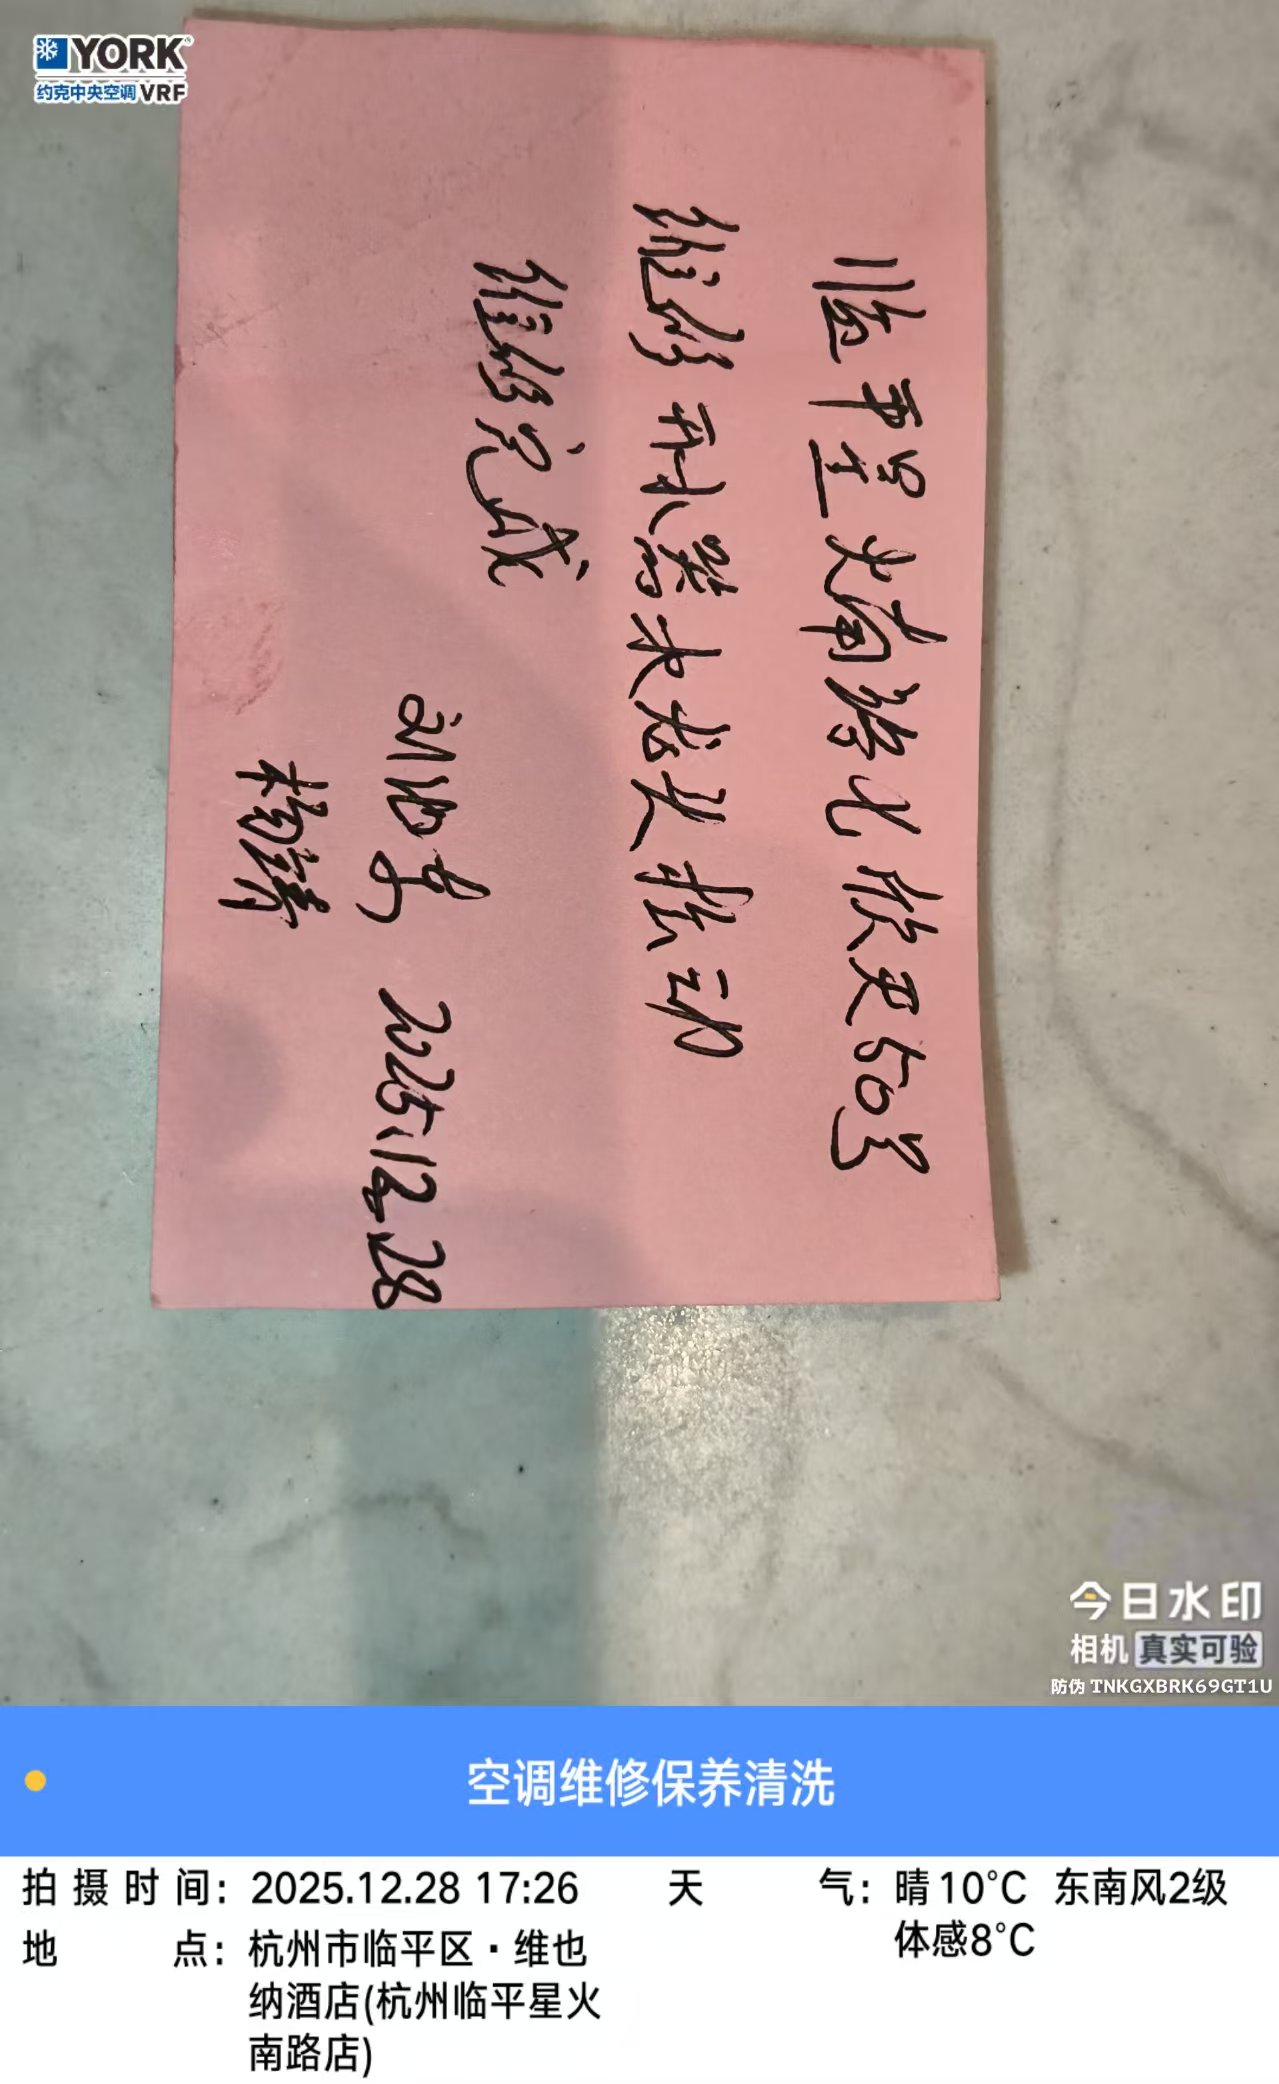 YORK
约克中央空调 VRF
临平星火南路北 欣更50号
维修 开水器水龙头松动
维修完成
2025.12.28
杨锋
今日水印
相机 真实可验
防伪 TNKGXBRK69GT1U
空调维修保养清洗
拍摄时间: 2025.12.28 17:26
天气: 晴 10°C 东南风2级
体感8°C
地点: 杭州市临平区·维也
纳酒店(杭州临平星火
南路店)